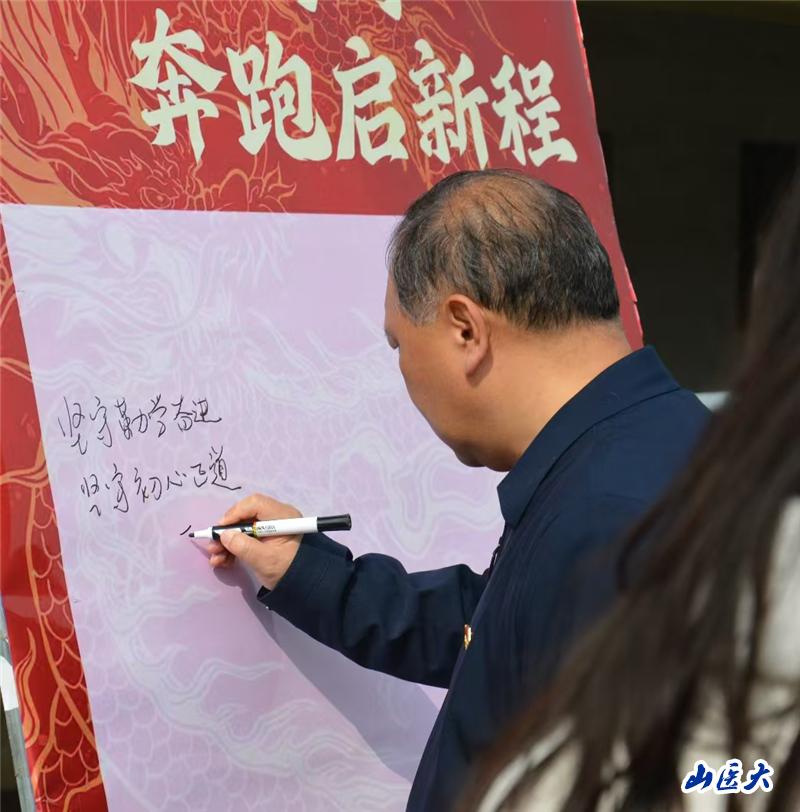 奔跑启新程
坚守勤学奋进
坚守初心正道
山医大